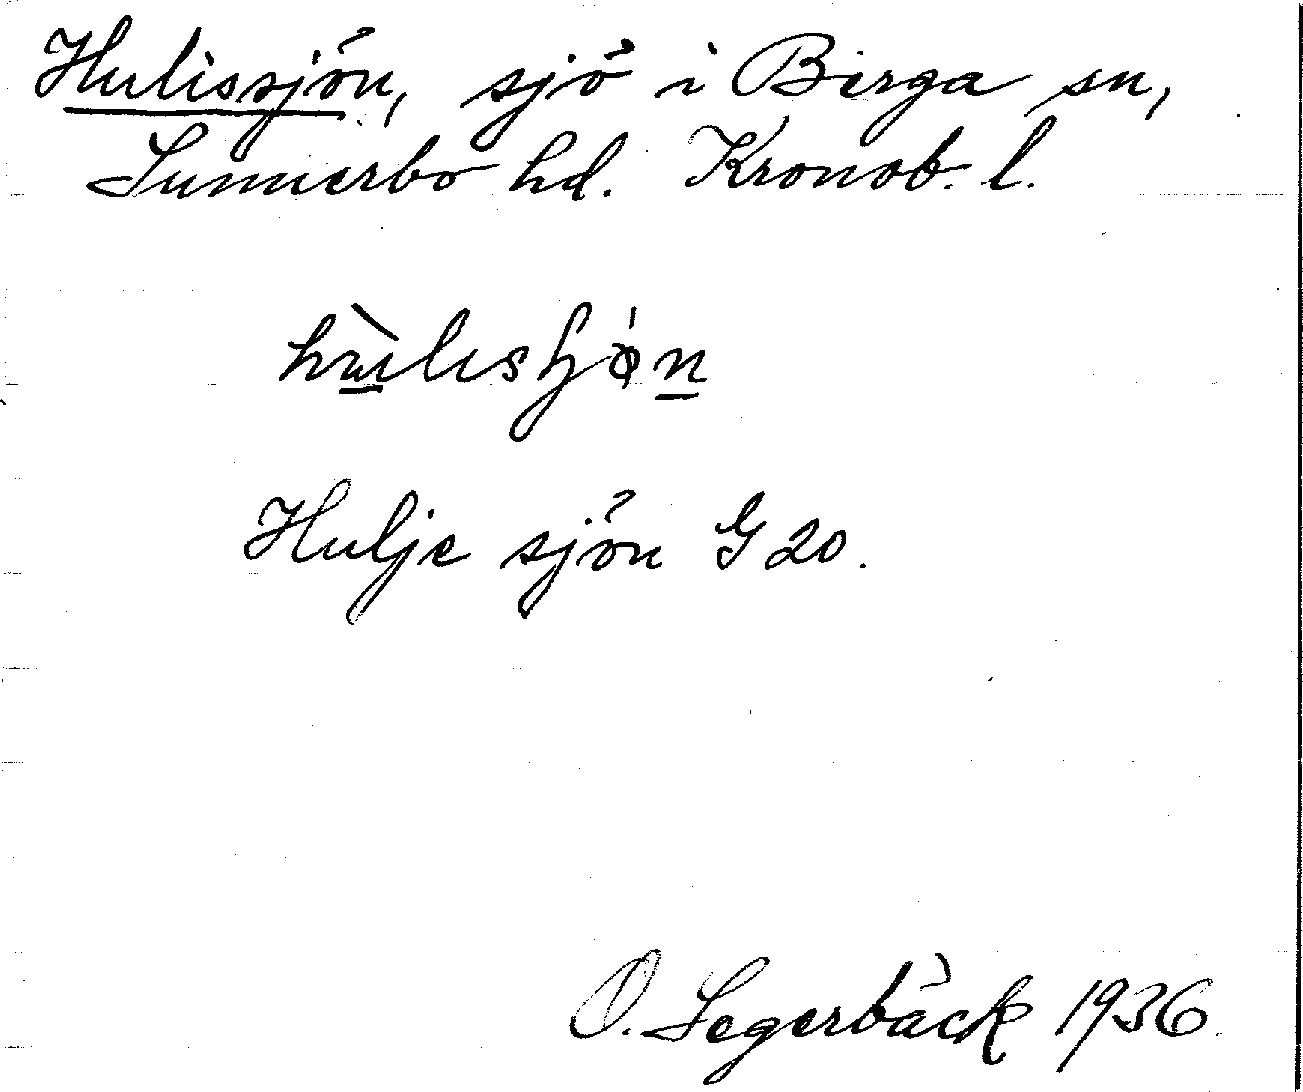 Hulissjön, sjö i Berga sn,
Sunnerbo hd. Kronob. l.
Hulje sjön G 20.
O. Segerbäck 1936.